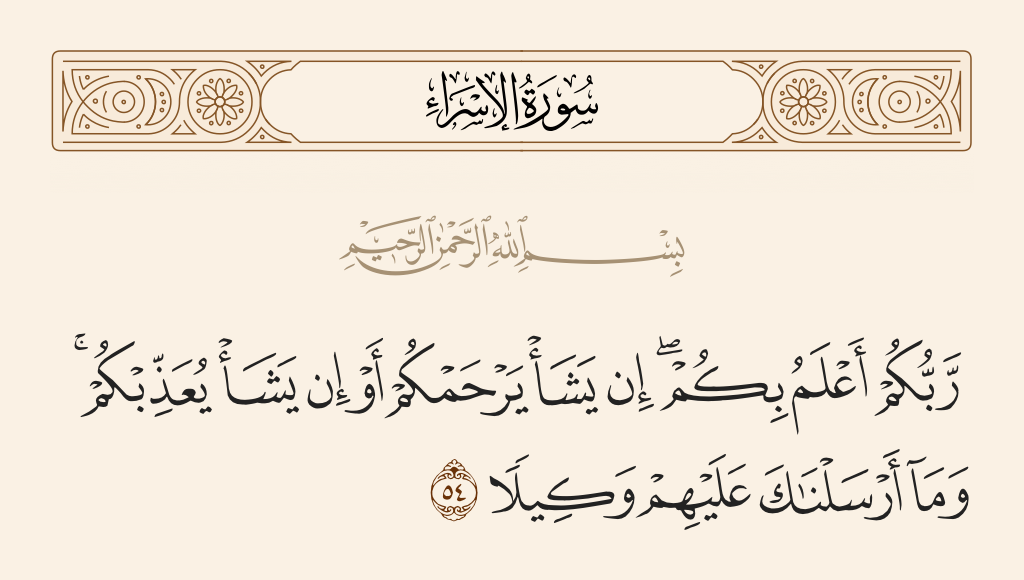 سُورَةُ الإِسْرَاءِ
بِسْمِ ٱللَّهِ ٱلرَّحْمَٰنِ ٱلرَّحِيمِ
رَّبُّكُمْ أَعْلَمُ بِكُمْ ۖ إِن يَشَأْ يَرْحَمْكُمْ أَوْ إِن يَشَأْ يُعَذِّبْكُمْ ۚ
وَمَآ أَرْسَلْنَٰكَ عَلَيْهِمْ وَكِيلًا ٥٤